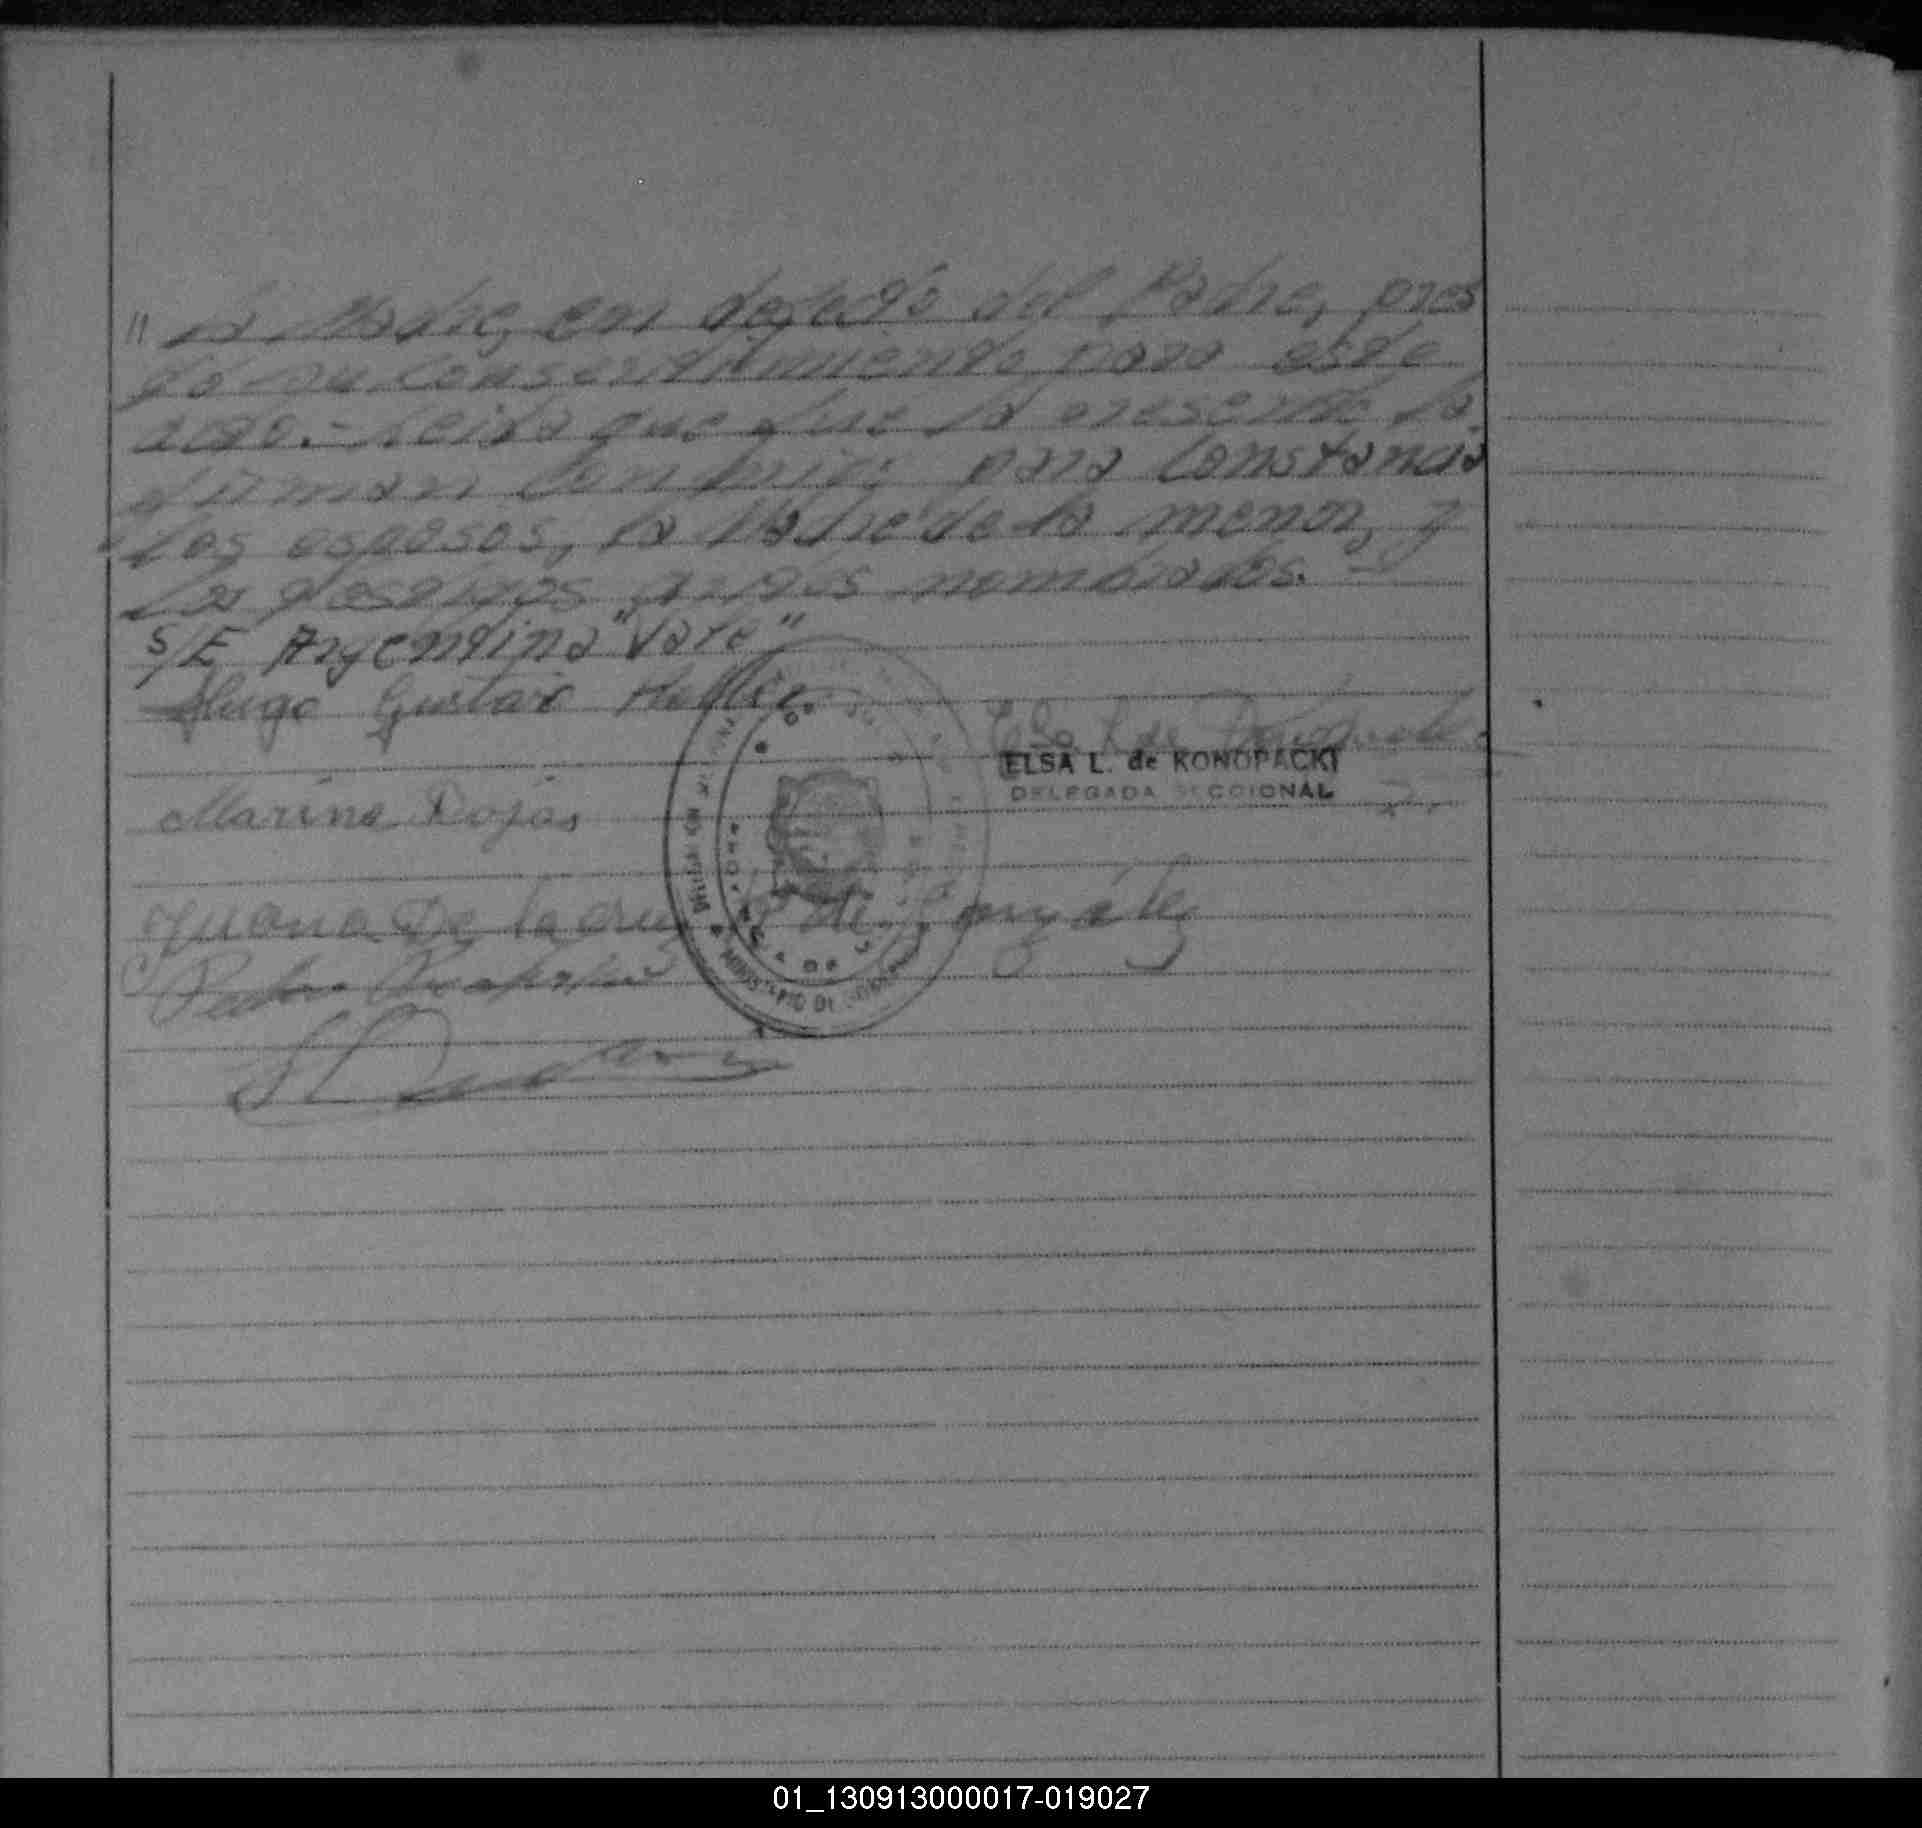 " la Madre, en defecto del Padre, pres
tó su consentimiento para este
acto.- Leida que fue la presente la
firman conmigo para constancia
los esposos, la Madre de la menor, y
los testigos antes nombrados. -
S/E Argentina "Vale"
Hugo Gustavo
Elsa L de Konopacki
ELSA L. de KONOPACKI
DELEGADA SECCIONAL
Marina Rojas
Juana De la cruz de González
Pedro
MINISTERIO DE
01_130913000017-019027